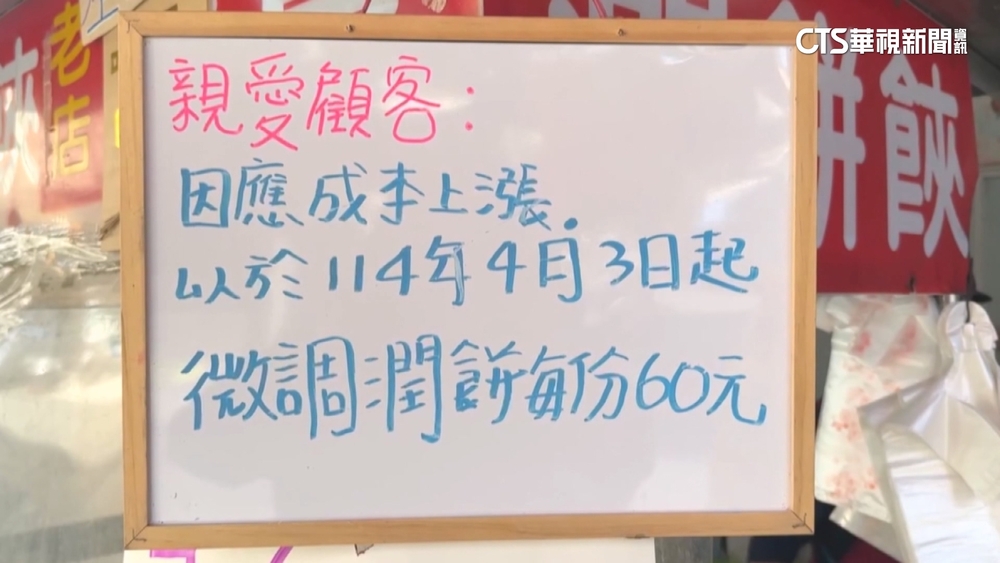 CTS華視新聞資訊
老店
餅餃
親愛顧客:
因應成本上漲.
以於114年4月3日起
微調潤餅每份60元